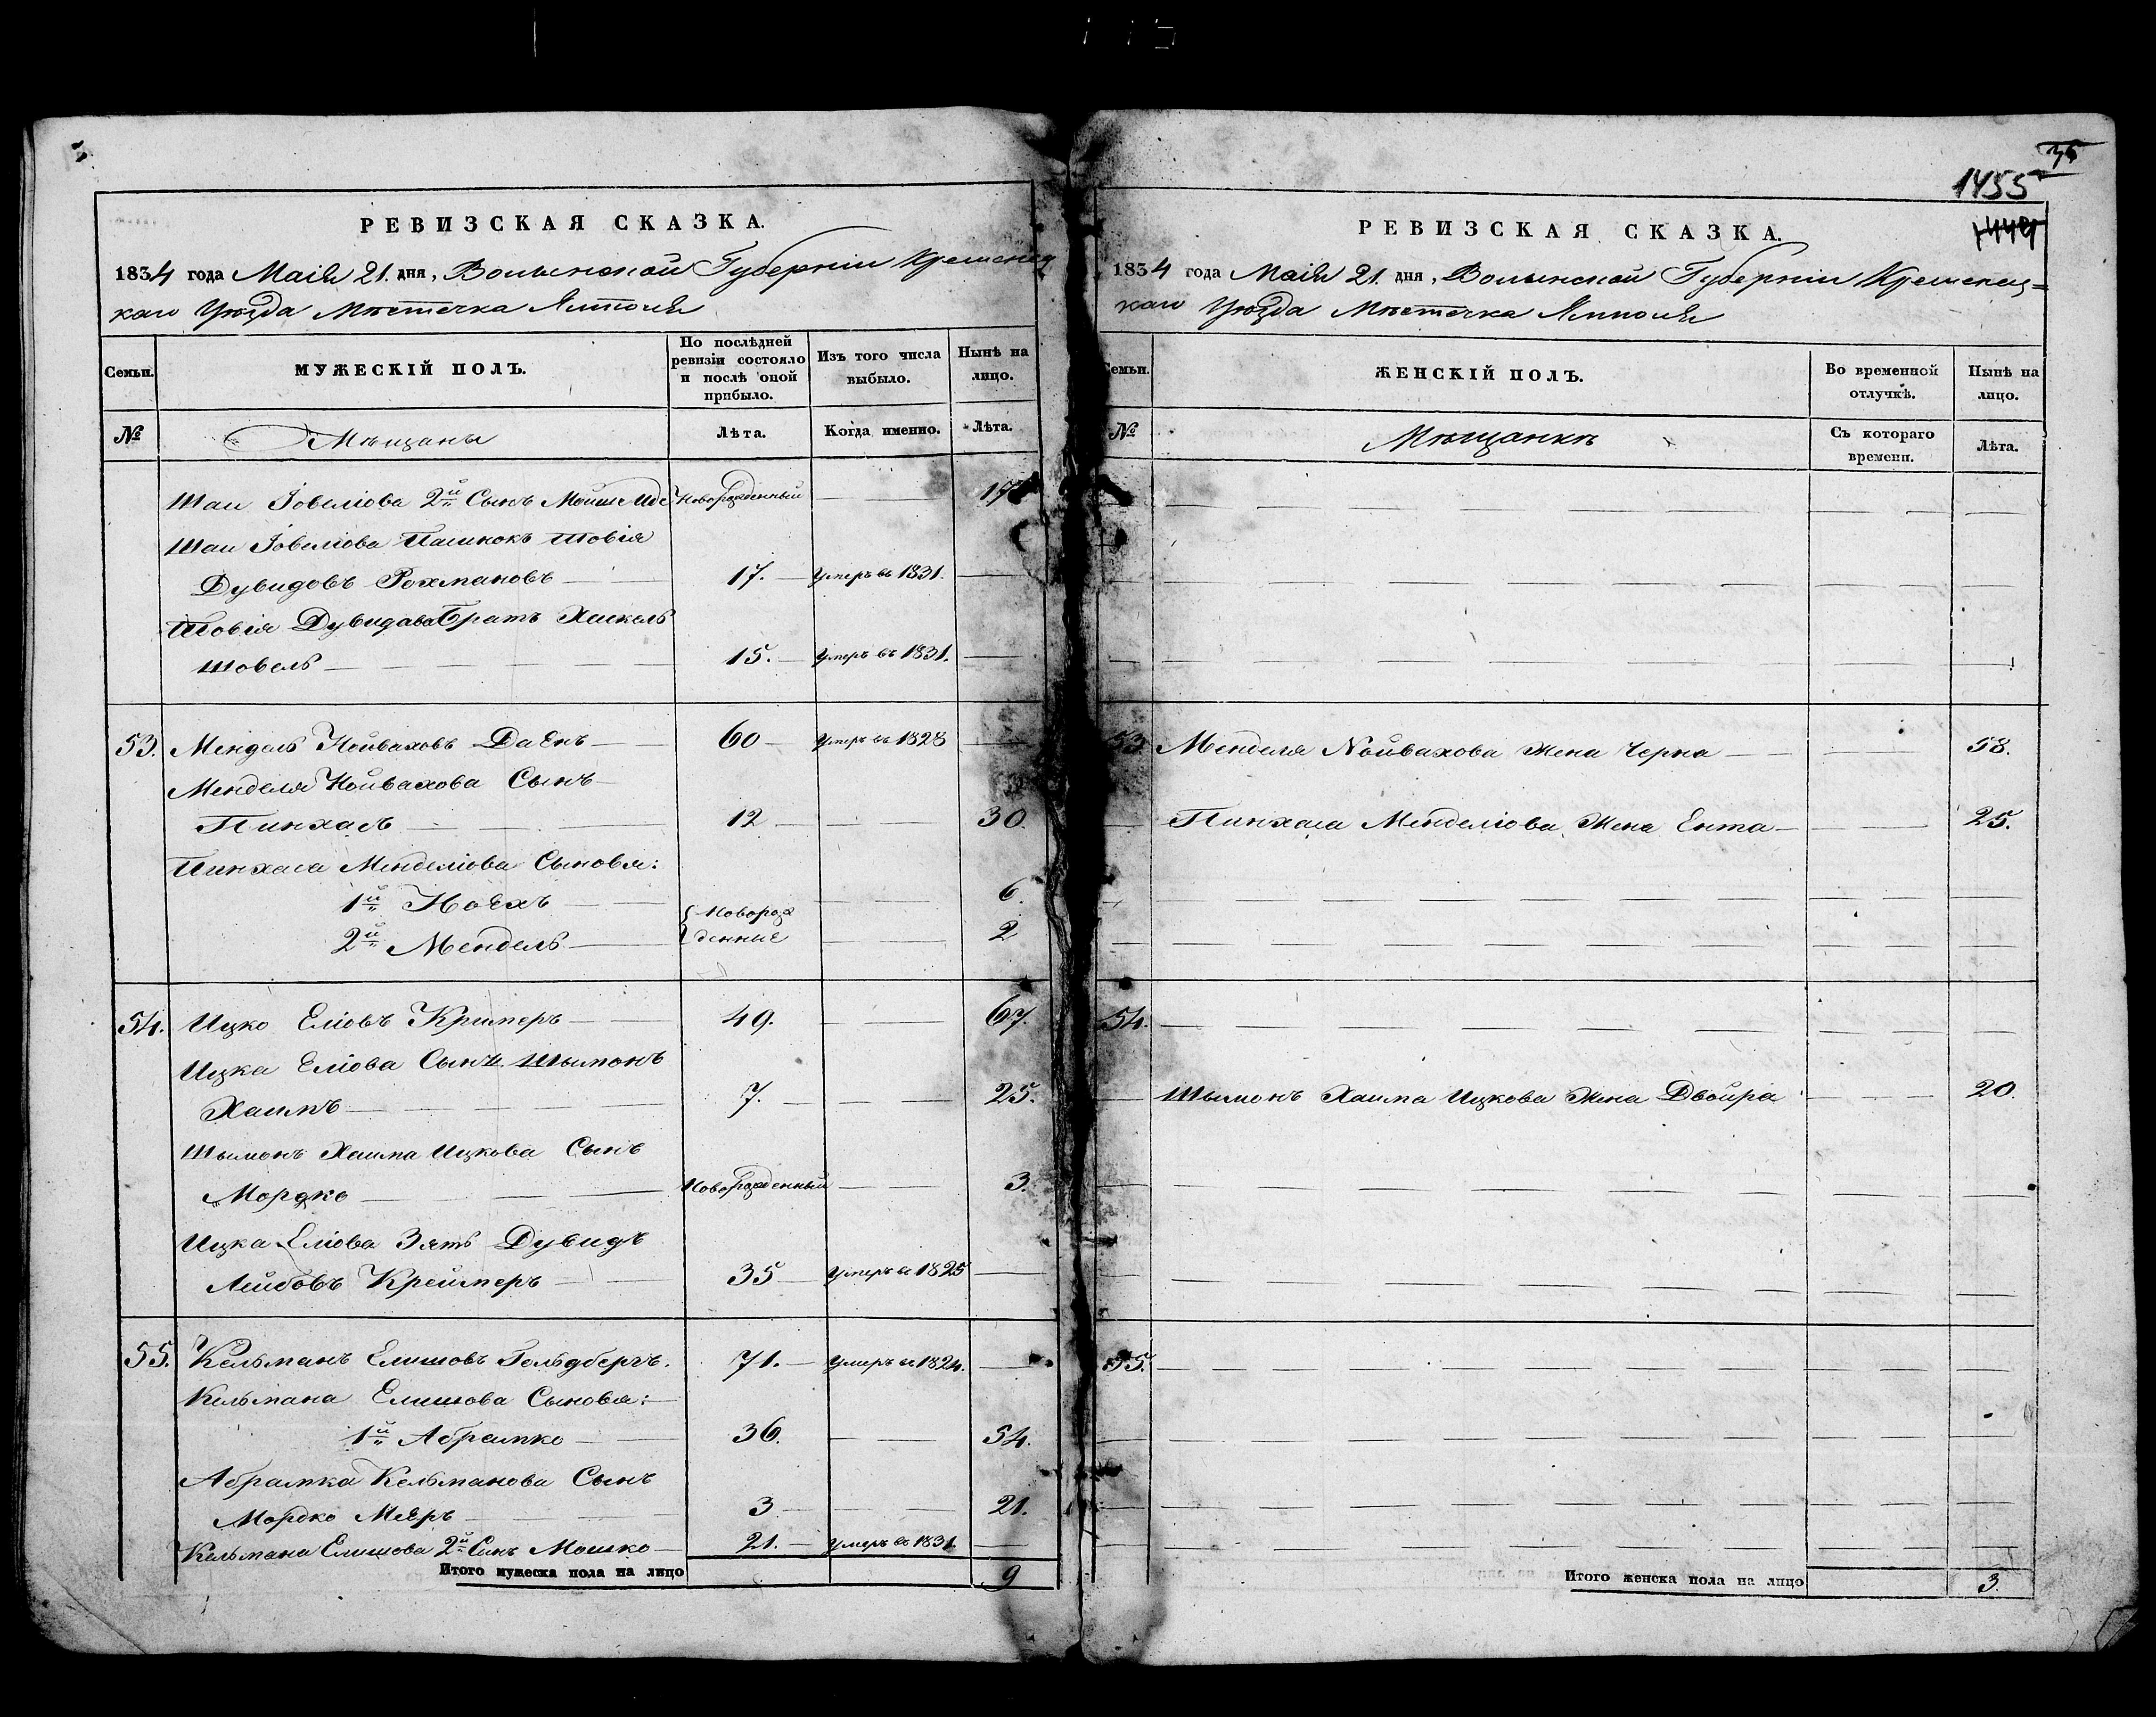 РЕВИЗСКАЯ СКАЗКА.
1834 года Маія 21. дня, Волынской Губерніи Кременец
каго Уѣзда Мѣстечка Ямполя
Семьи.
МУЖЕСКІЙ ПОЛЪ.
По послѣдней ревизіи состояло и послѣ оной прибыло.
Изъ того числа выбыло.
Нынѣ на лицо.
№
Мѣщаны
Лѣта.
Когда именно.
Лѣта.
Шаи Іовеліова 2й Сынъ Мойше Новорожденный 17
Шаи Іовеліова Пасинокъ Товія
Дувидовъ Рохмановъ 17. Умеръ въ 1831.
Товія Дувидова Братъ Хаскель
Шовель 15. Умеръ въ 1831.
53. Мендель Нойваховъ Даенъ 60 Умеръ въ 1828
Менделя Нойвахова Сынъ
Пинхасъ 12 30.
Пинхаса Менделіова Сыновья:
1й Ноехъ 6.
2й Мендель Новорожденные 2
54. Ицко Еліовъ Кримеръ 49. 67.
Ицка Еліова Сынъ Шымонъ
Хаимъ 7. 25.
Шымонъ Хаима Ицкова Сынъ
Мордко Новорожденный 3.
Ицка Еліова Зять Дувидъ
Лейбовъ Креймеръ 35 Умеръ въ 1825
55. Кельманъ Елишовъ Гольдбергъ. 71. Умеръ въ 1824.
Кельмана Елишова Сыновья:
1й Абрамко 36. 54.
Абрамка Кельманова Сынъ
Мордко Меєръ 3 21.
Кельмана Елишова 2й Сынъ Мошко 21. Умеръ въ 1831
Итого мужеска пола на лицо 9
1455
РЕВИЗСКАЯ СКАЗКА.
1834 года Маія 21. дня, Волынской Губерніи Кременец=
каго Уѣзда Мѣстечка Ямполя
Семьи.
ЖЕНСКІЙ ПОЛЪ.
Во временной отлучкѣ.
Нынѣ на лицо.
№
Мѣщанки
Съ котораго времени.
Лѣта.
53 Менделя Нойвахова Жена Черна 58.
Пинхаса Менделіова Жена Ента 25.
54.
Шымонъ Хаима Ицкова Жена Двойра 20.
55.
Итого женска пола на лицо 3.